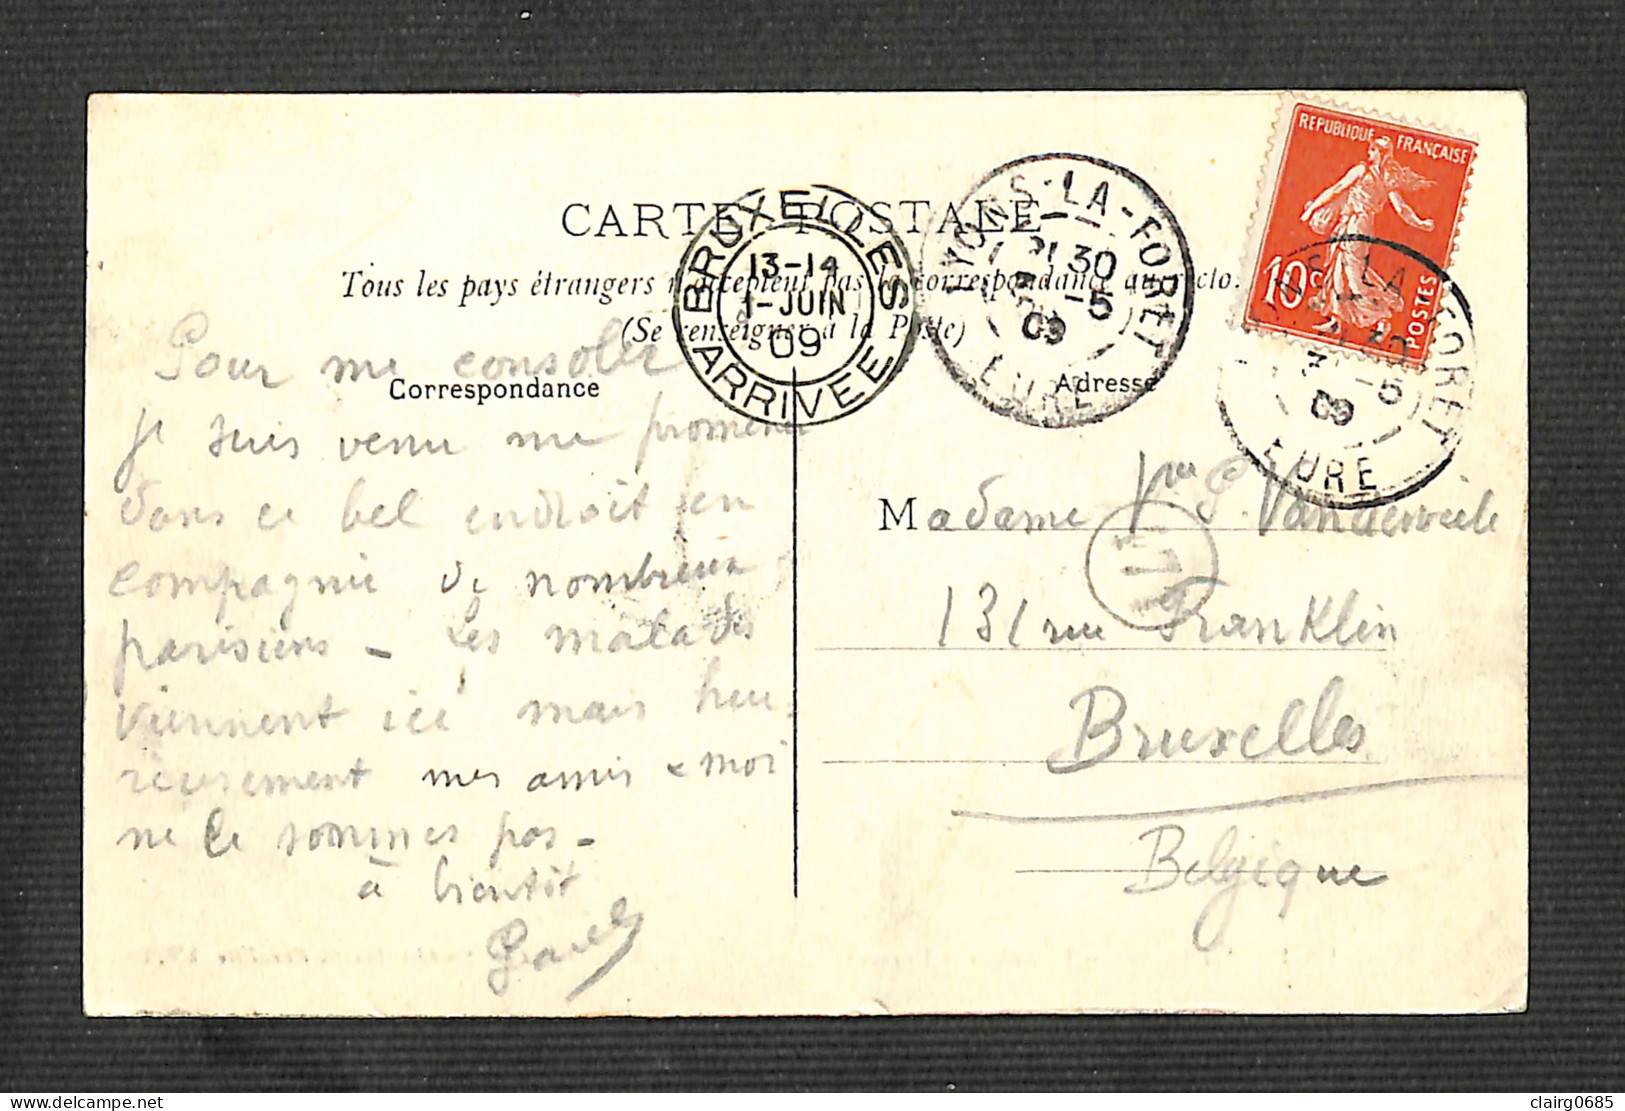 REPUBLIQUE FRANÇAISE
10c
POSTES
CARTE POSTALE
Tous les pays étrangers n'acceptent pas la correspondance au recto.
(Se renseigner à la Poste)
Correspondance
Adresse
BRUXELLES
13-14
1-JUIN
09
ARRIVEE
LYONS-LA-FORET
30
31 -5
09
EURE
LA FORET
-5
09
EURE
Pour me consoler
je suis venu me promener
dans ce bel endroit en
compagnie de nombreux
parisiens - Les malades
viennent ici mais heu-
reusement mes amis & moi
ne le sommes pas -
à bientôt
Madame Vve Vanderveele
131 rue Franklin
Bruxelles
Belgique
delcampe.net
clairg0685